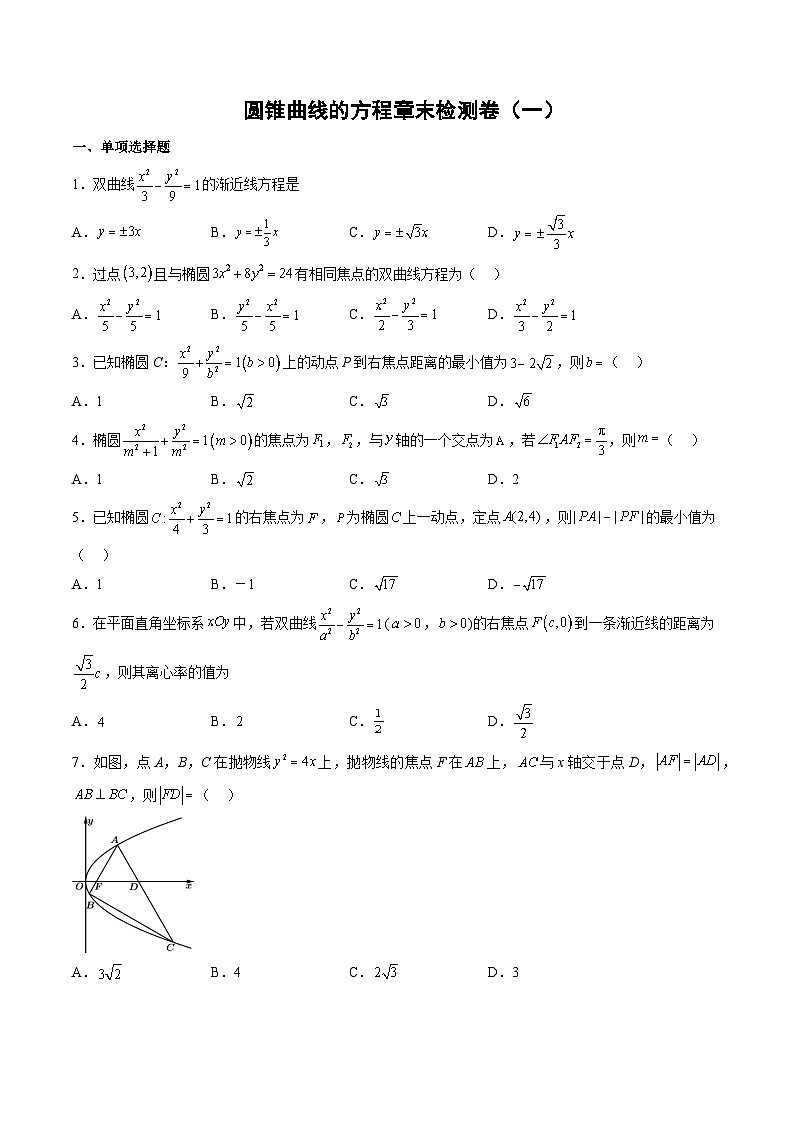 圆锥曲线的方程章末检测卷（一）
一、单项选择题
1．双曲线 x²/3 − y²/9 = 1 的渐近线方程是
A．y = ±3x B．y = ±1/3 x C．y = ±√3x D．y = ±√3/3 x
2．过点(3,2)且与椭圆3x² + 8y² = 24有相同焦点的双曲线方程为（ ）
A．x²/5 − y²/5 = 1 B．y²/5 − x²/5 = 1 C．x²/2 − y²/3 = 1 D．x²/3 − y²/2 = 1
3．已知椭圆 C：x²/9 + y²/b² = 1(b > 0)上的动点 P 到右焦点距离的最小值为 3 − 2√2，则 b =（ ）
A．1 B．√2 C．√3 D．√6
4．椭圆 x²/(m²+1) + y²/m² = 1(m > 0)的焦点为 F₁，F₂，与 y 轴的一个交点为 A，若∠F₁AF₂ = π/3，则 m =（ ）
A．1 B．√2 C．√3 D．2
5．已知椭圆 C : x²/4 + y²/3 = 1 的右焦点为 F，P 为椭圆 C 上一动点，定点 A(2,4)，则 |PA| − |PF| 的最小值为
（ ）
A．1 B．－1 C．√17 D．−√17
6．在平面直角坐标系 xOy 中，若双曲线 x²/a² − y²/b² = 1(a > 0，b > 0)的右焦点 F(c,0)到一条渐近线的距离为
√3/2 c，则其离心率的值为
A．4 B．2 C．1/2 D．√3/2
7．如图，点 A，B，C 在抛物线 y² = 4x 上，抛物线的焦点 F 在 AB 上，AC 与 x 轴交于点 D，|AF| = |AD|，
AB ⊥ BC，则 |FD| =（ ）
y
A
O F D x
B
C
A．3√2 B．4 C．2√3 D．3